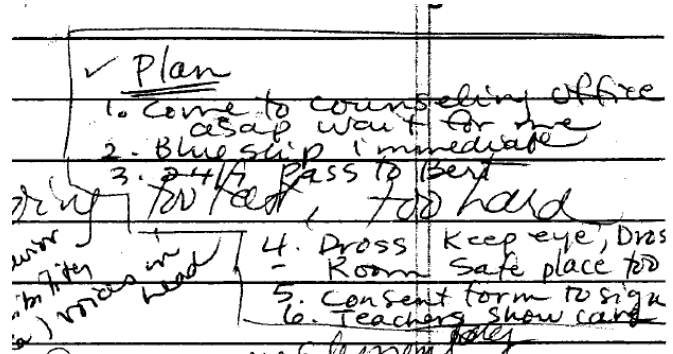 ✓ Plan
1. Come to counseling office
asap wait for me
2. Blue slip immediate
3. 24/7 Pass to Bert
too fast, too hard
4. Dross Keep eye, Dros
- Room Safe place too
5. Consent form to sign
6. Teachers show care
voices in
head